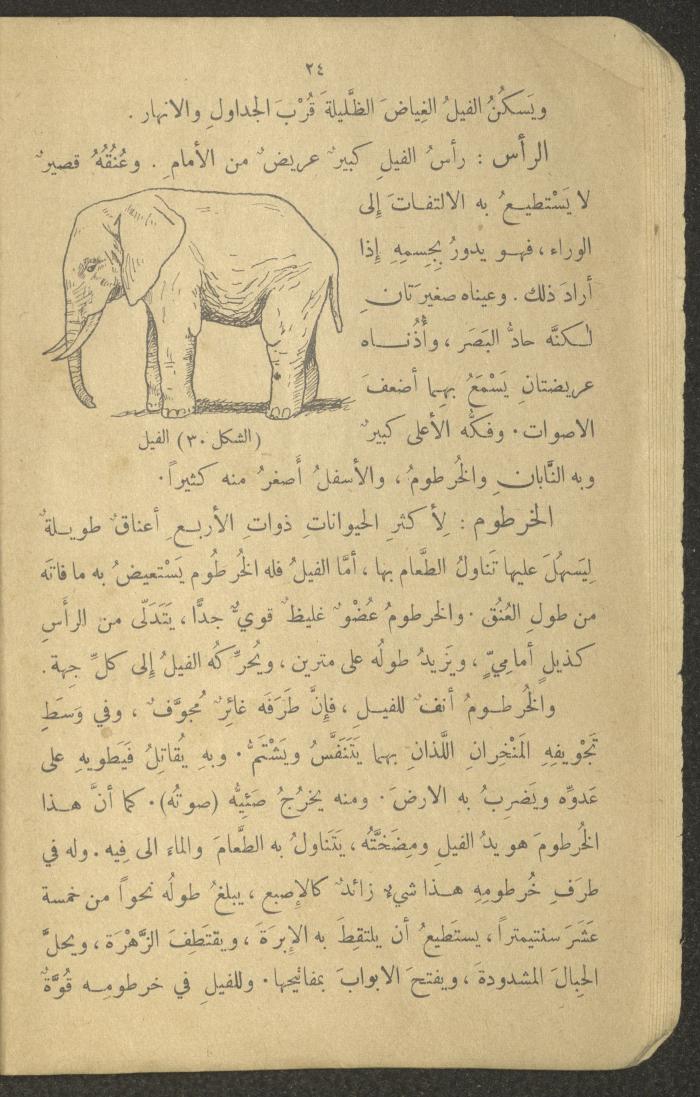 ٢٤
ويَسكُنُ الفيلُ الغِياضَ الظَّليلةَ قُرْبَ الجداولِ والانهار .
الرأس : رأسُ الفيلِ كبيرٌ عريضٌ من الأمامِ . وعُنُقُهُ قصيرٌ
لا يَسْتطيعُ به الالتفاتَ إِلى
الوراء ، فهو يدورُ بِجِسمِهِ إِذا
أرادَ ذلك . وعيناه صغيرَتانِ
لكنَّه حادُّ البَصَر ، وأُذُناه
عريضتانِ يَسْمَعُ بهما أضعفَ
الاصوات . وفكُّه الأعلى كبيرٌ
(الشكل ٣٠) الفيل
وبه النَّابانِ والخُرطومُ ، والأسفلُ أَصغرُ منه كثيراً .
الخرطوم : لِأكثرِ الحيواناتِ ذواتِ الأربعِ أعناقٌ طويلةٌ
لِيَسهُلَ عليها تَناولُ الطَّعام بها ، أمَّا الفيلُ فله الخُرطُوم يَسْتعيضُ به ما فاتَه
من طولِ العُنُق . والخرطومُ عُضْوٌ غليظٌ قويٌّ جدًّا ، يَتَدَلّى من الرأَسِ
كذيلٍ أمامِيٍّ ، ويَزيدُ طولُه على مترين ، ويُحرِّكُه الفيلُ إِلى كلِّ جِهة .
والخُرطومُ أنفٌ للفيلِ ، فإِنَّ طَرَفَه غائِرٌ مُجوَّفٌ ، وفي وَسَطِ
تَجْويفِهِ المَنْخِرانِ اللَّذانِ بهما يَتَنَفَّسُ ويَشْتَمُّ . وبهِ يُقاتِلُ فَيَطويهِ على
عَدوِّه ويَضرِبُ به الارضَ . ومنه يخرُجُ صَئِيُّه (صوتُه) . كما أنَّ هذا
الخُرطومَ هو يدُ الفيلِ ومِضَخَّتُه ، يَتَناولُ به الطَّعامَ والماء الى فِيه . وله في
طرَفِ خُرطومِهِ هذا شيءٌ زائدٌ كالإِصبع ، يبلغُ طولُه نحواً من خمسة
عَشَرَ سنتيمتراً ، يستَطيعُ أن يلتقِطَ به الإِبرَةَ ، ويقتَطِفَ الزَّهْرَة ، ويحلَّ
الحِبالَ المشدودةَ ، ويفتحَ الابوابَ بمفاتيحِها . وللفيلِ في خرطومِه قُوَّةٌ